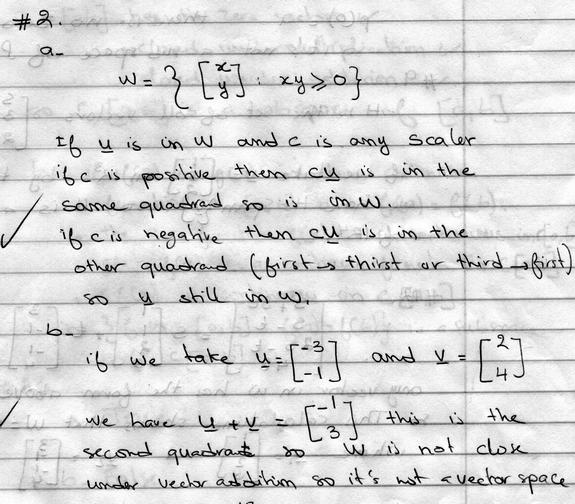 #2.
a-
W = { [x y] : xy ≥ 0 }
If u is in W and c is any scaler
if c is positive then cu is in the
same quadrad so is in W.
if c is negative then cu is in the
other quadrad (first → thirst or third → first)
so u still in W.
b-
if we take u = [-3 -1] and v = [2 4]
we have u + v = [-1 3] this is the
second quadrat so W is not close
under vector addition so it's not a vector space